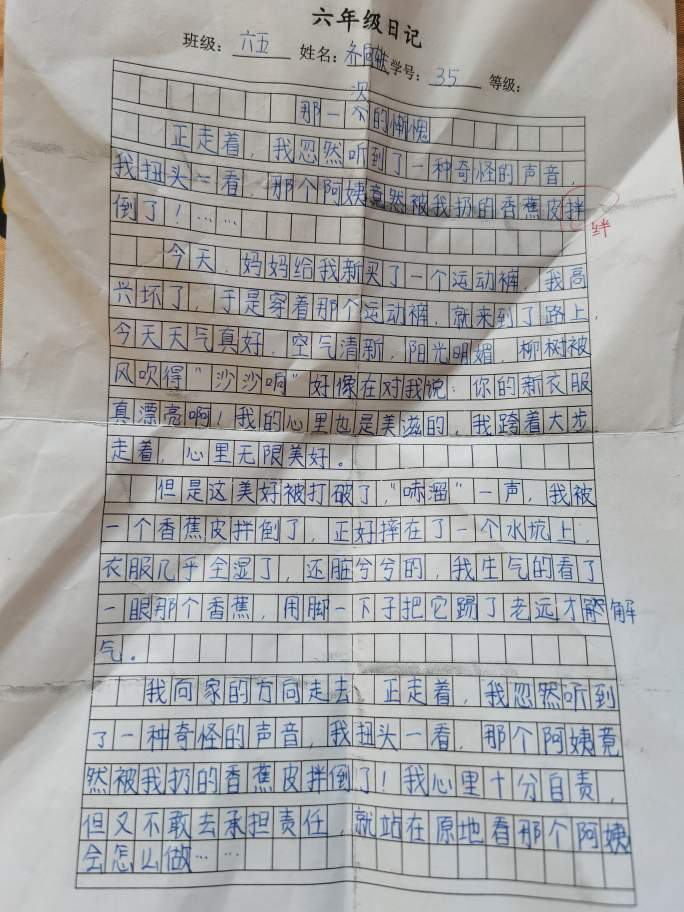 六年级日记
班级：六五 姓名：齐 学号：35 等级：
次
那一的惭愧
正走着，我忽然听到了一种奇怪的声音，
我扭头一看，那个阿姨竟然被我扔的香蕉皮拌
绊
倒了！……
今天，妈妈给我新买了一个运动裤，我高
兴坏了，于是穿着那个运动裤，就来到了路上，
今天天气真好，空气清新，阳光明媚，柳树被
风吹得“沙沙响”好像在对我说：你的新衣服
真漂亮啊！我的心里也是美滋的，我跨着大步
走着，心里无限美好。
但是这美好被打破了，“哧溜”一声，我被
一个香蕉皮拌倒了，正好摔在了一个水坑上，
衣服几乎全湿了，还脏兮兮的，我生气的看了
一眼那个香蕉，用脚一下子把它踢了老远才解
气。
我向家的方向走去，正走着，我忽然听到
了一种奇怪的声音，我扭头一看，那个阿姨竟
然被我扔的香蕉皮拌倒了！我心里十分自责，
但又不敢去承担责任，就站在原地看那个阿姨
会怎么做……